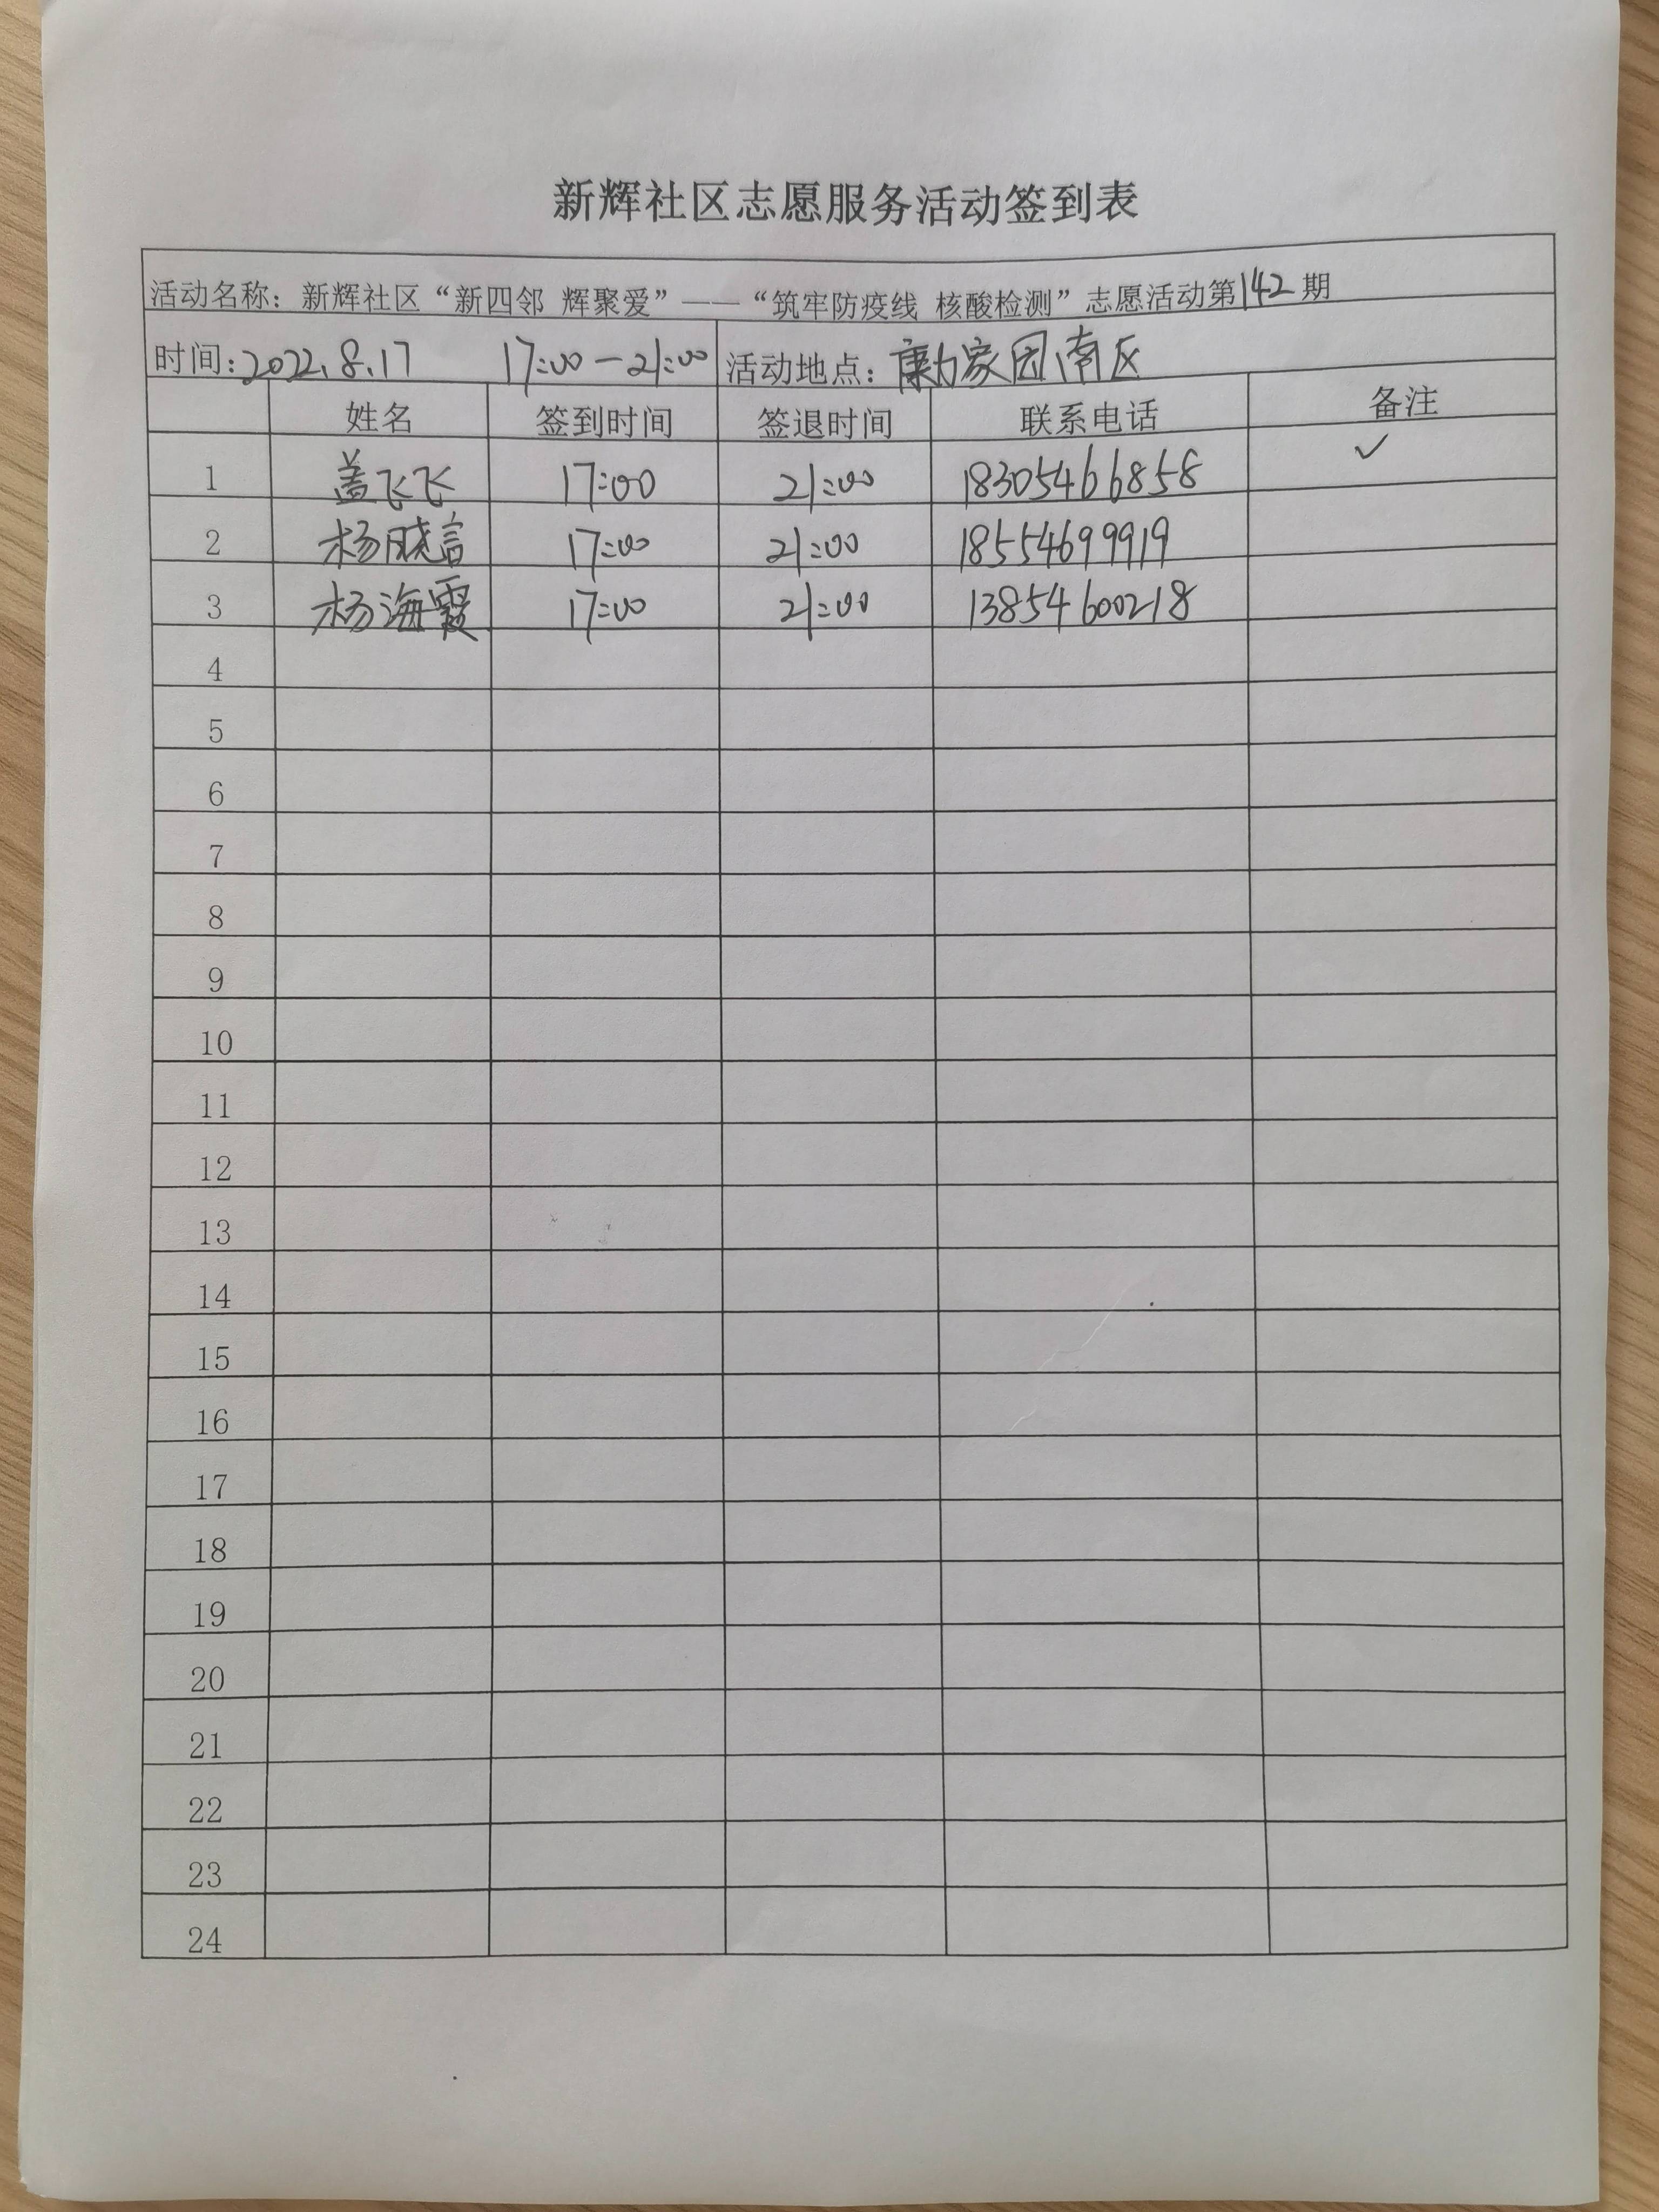 新辉社区志愿服务活动签到表
活动名称：新辉社区“新四邻 辉聚爱”——“筑牢防疫线 核酸检测”志愿活动第142期
时间：2022.8.17 17:00—21:00 活动地点：家园南区
姓名 签到时间 签退时间 联系电话 备注
1 盖飞飞 17:00 21:00 18305466858 ✓
2 杨晓言 17:00 21:00 18554699919
3 杨海霞 17:00 21:00 13854600218
4
5
6
7
8
9
10
11
12
13
14
15
16
17
18
19
20
21
22
23
24